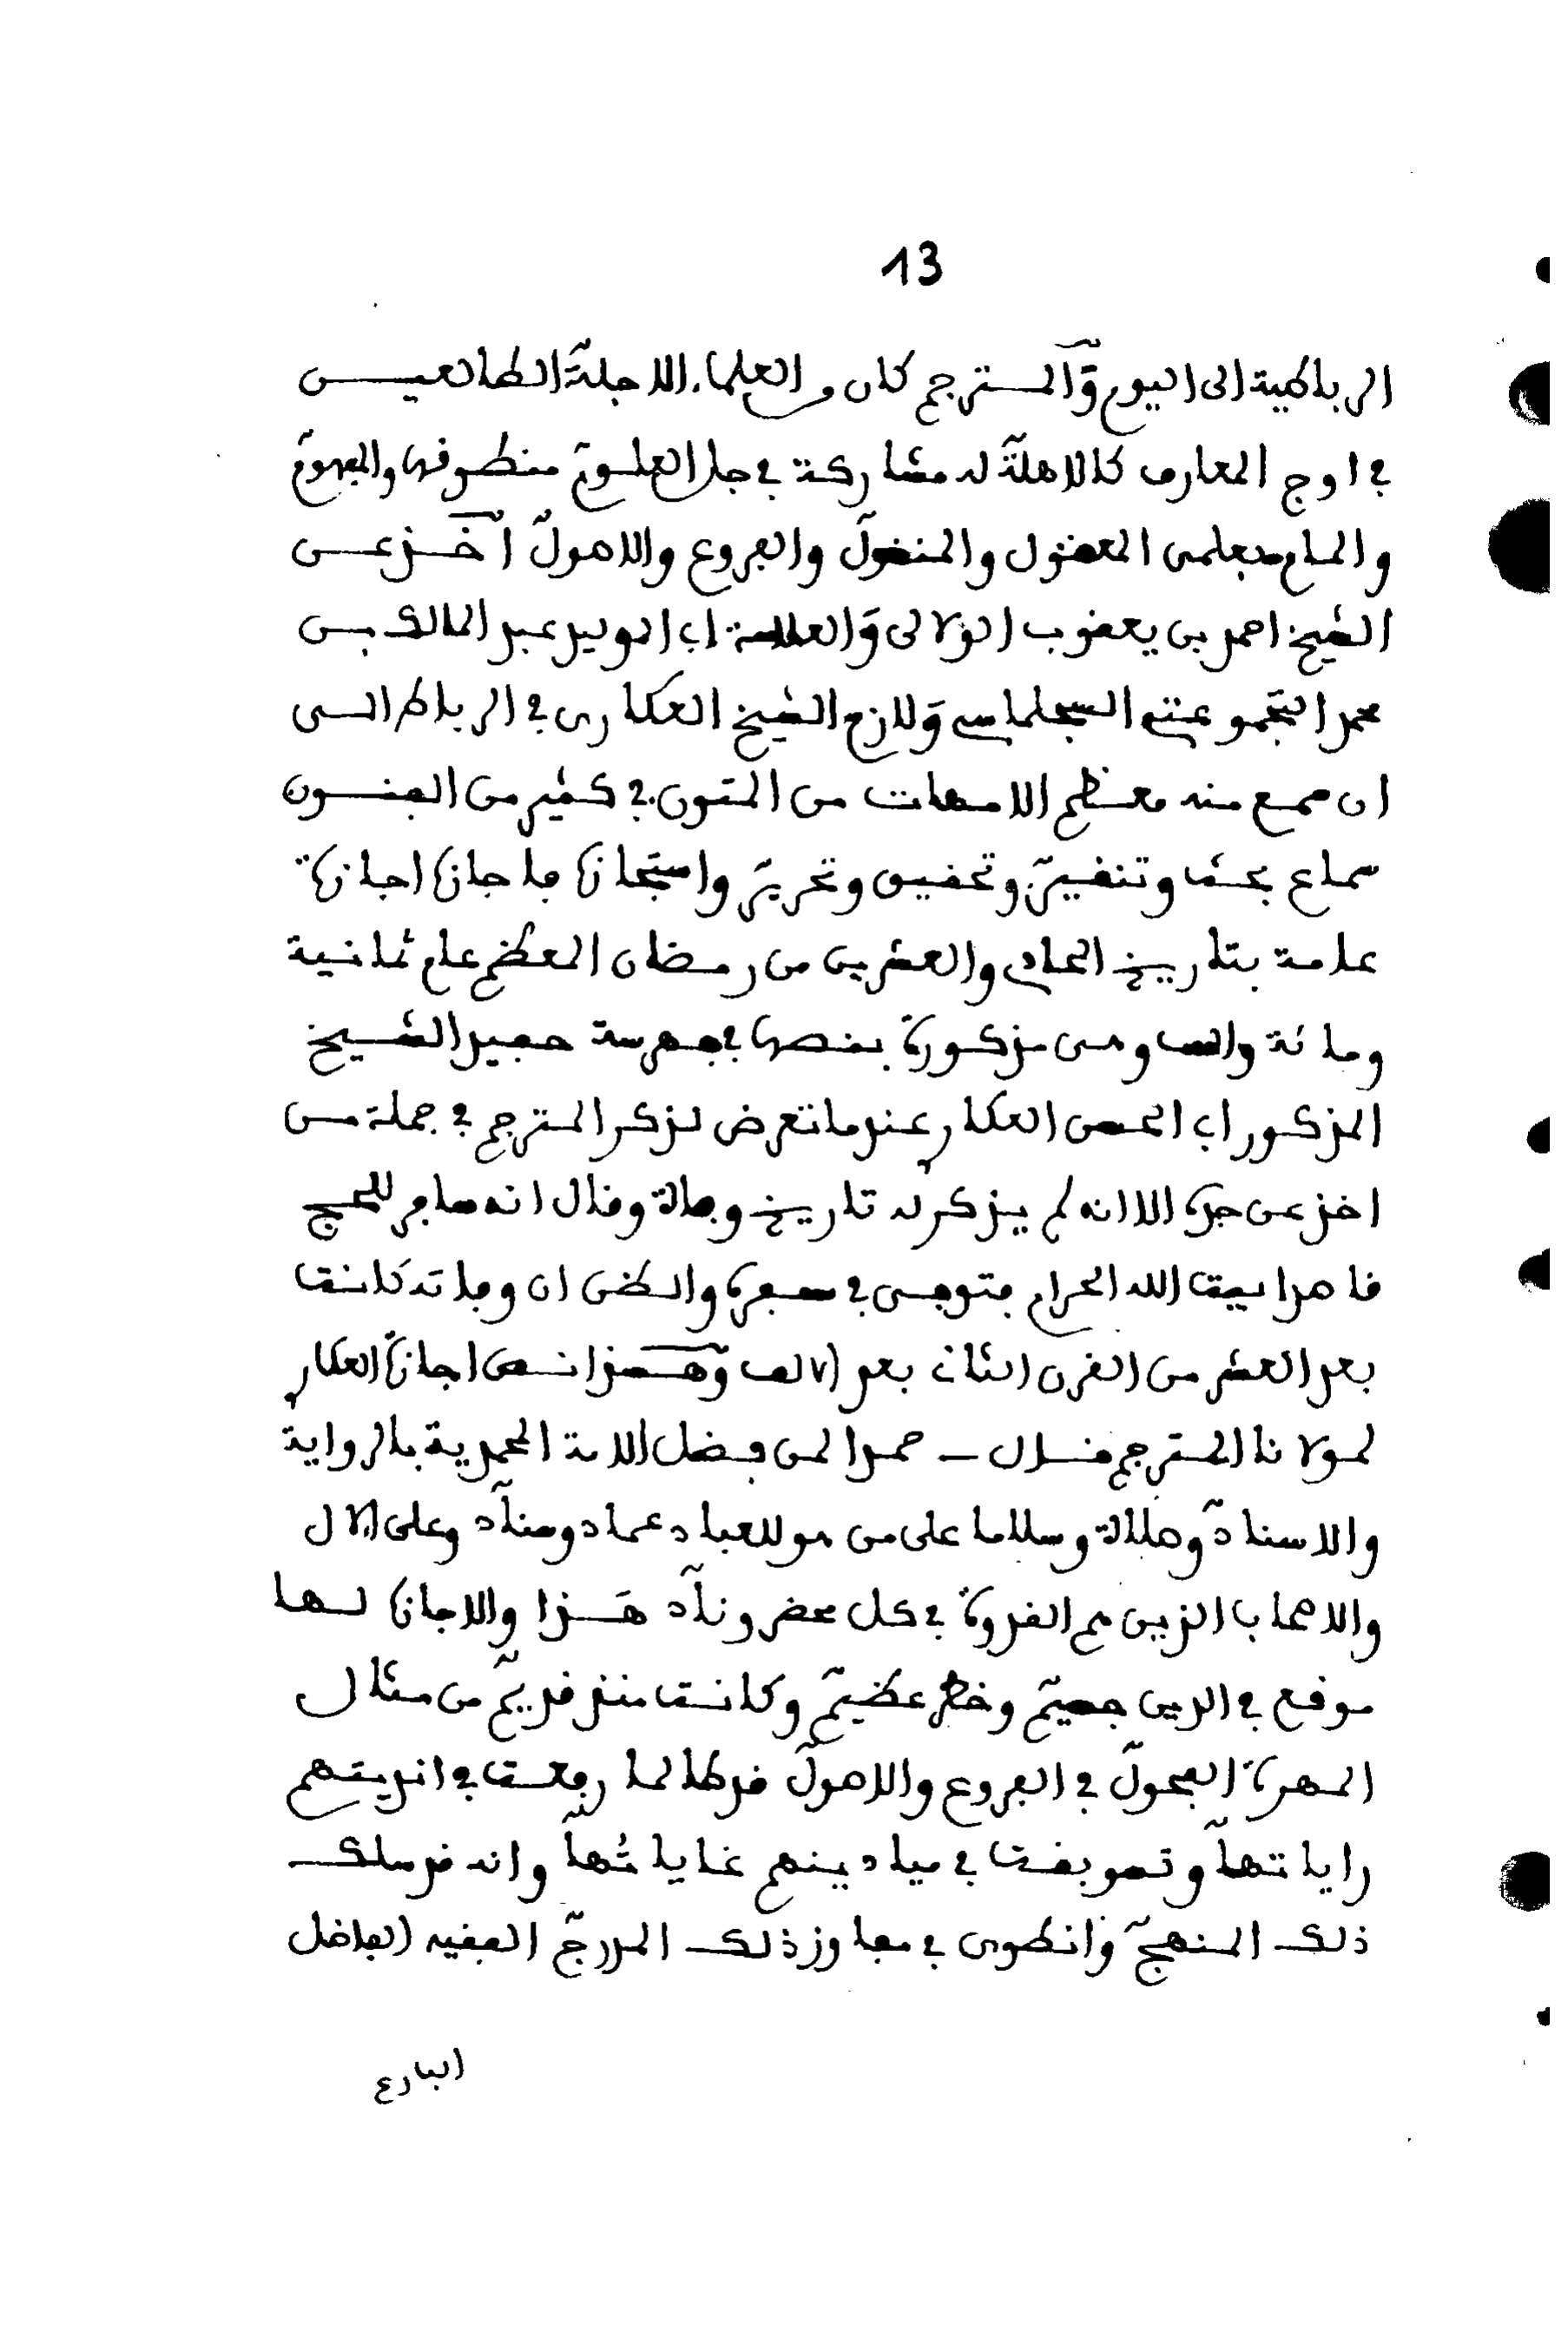 13
الرباطية الى اليوم والمترجم كان من العلماء الاجلة الطالعيـن
في اوج المعارف كالاهلة له مشاركة في جل العلوم منطوقها والمفهوم
والماع بعلمى المعقول والمنقول والفروع والاصول اخـذ عـن
الشيخ احمد بن يعقوب الولالى والعلامة ابى الوليد عبد المالك بـن
محمد التجموعتى السجلماسي ولازم الشيخ العكارى في الرباط الـى
ان سمع منه معظم الامهات من المتون في كثير من الفنـون
سماع بحث وتنقير وتحقيق وتحرير واستجازه فاجازه اجازة
عامة بتاريخ الحادي والعشرين من رمضان المعظم عام ثمانية
ومائة والف وهى مذكورة بنصها في فهرسة حفيد الشـيخ
المذكور ابى الحسن العكاري عندما تعرض لذكر المترجم في جملة مـن
اخذ عن جده الا انه لم يذكر له تاريخ وفاة وقال انه سافر للحج
قاصدا بيت الله الحرام فتوفـى في سفره والظن ان وفاته كانت
بعد العشر من القرن الثاني بعد الالف وهـذا نـص اجازة العكاري
لمولانا المترجم قـال — حمدا لمن فضل الامة المحمدية بالرواية
والاسناد وصلاة وسلاما على من هو للعباد عماد وسناد وعلى الال
والاصحاب الذين هم القدوة في كل محضر وناد هـذا والاجازة لـها
موقع في الدين جسيم وخطر عظيم وكانت منذ قديم من مثال
المهرة الفحول في الفروع والاصول قد طالما رفعت في انديتهم
راياتها وتسوبقت في ميادينهم غاياتها وانه قد سلك
ذلك المنهج وانطوى في مفاوز ذلك المدرج الفقيه الفاضل
البارع